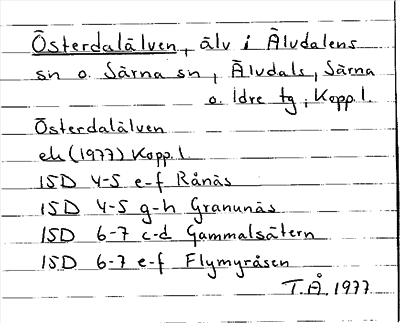 Österdalälven, älv i Älvdalens
sn o. Särna sn, Älvdals, Särna
o. Idre tg, Kopp. l.
Österdalälven
ek (1977) Kopp. l.
15D 4-5 e-f Rånäs
15D 4-5 g-h Granunäs
15D 6-7 c-d Gammalsätern
15D 6-7 e-f Flymyråsen
T.Å. 1977